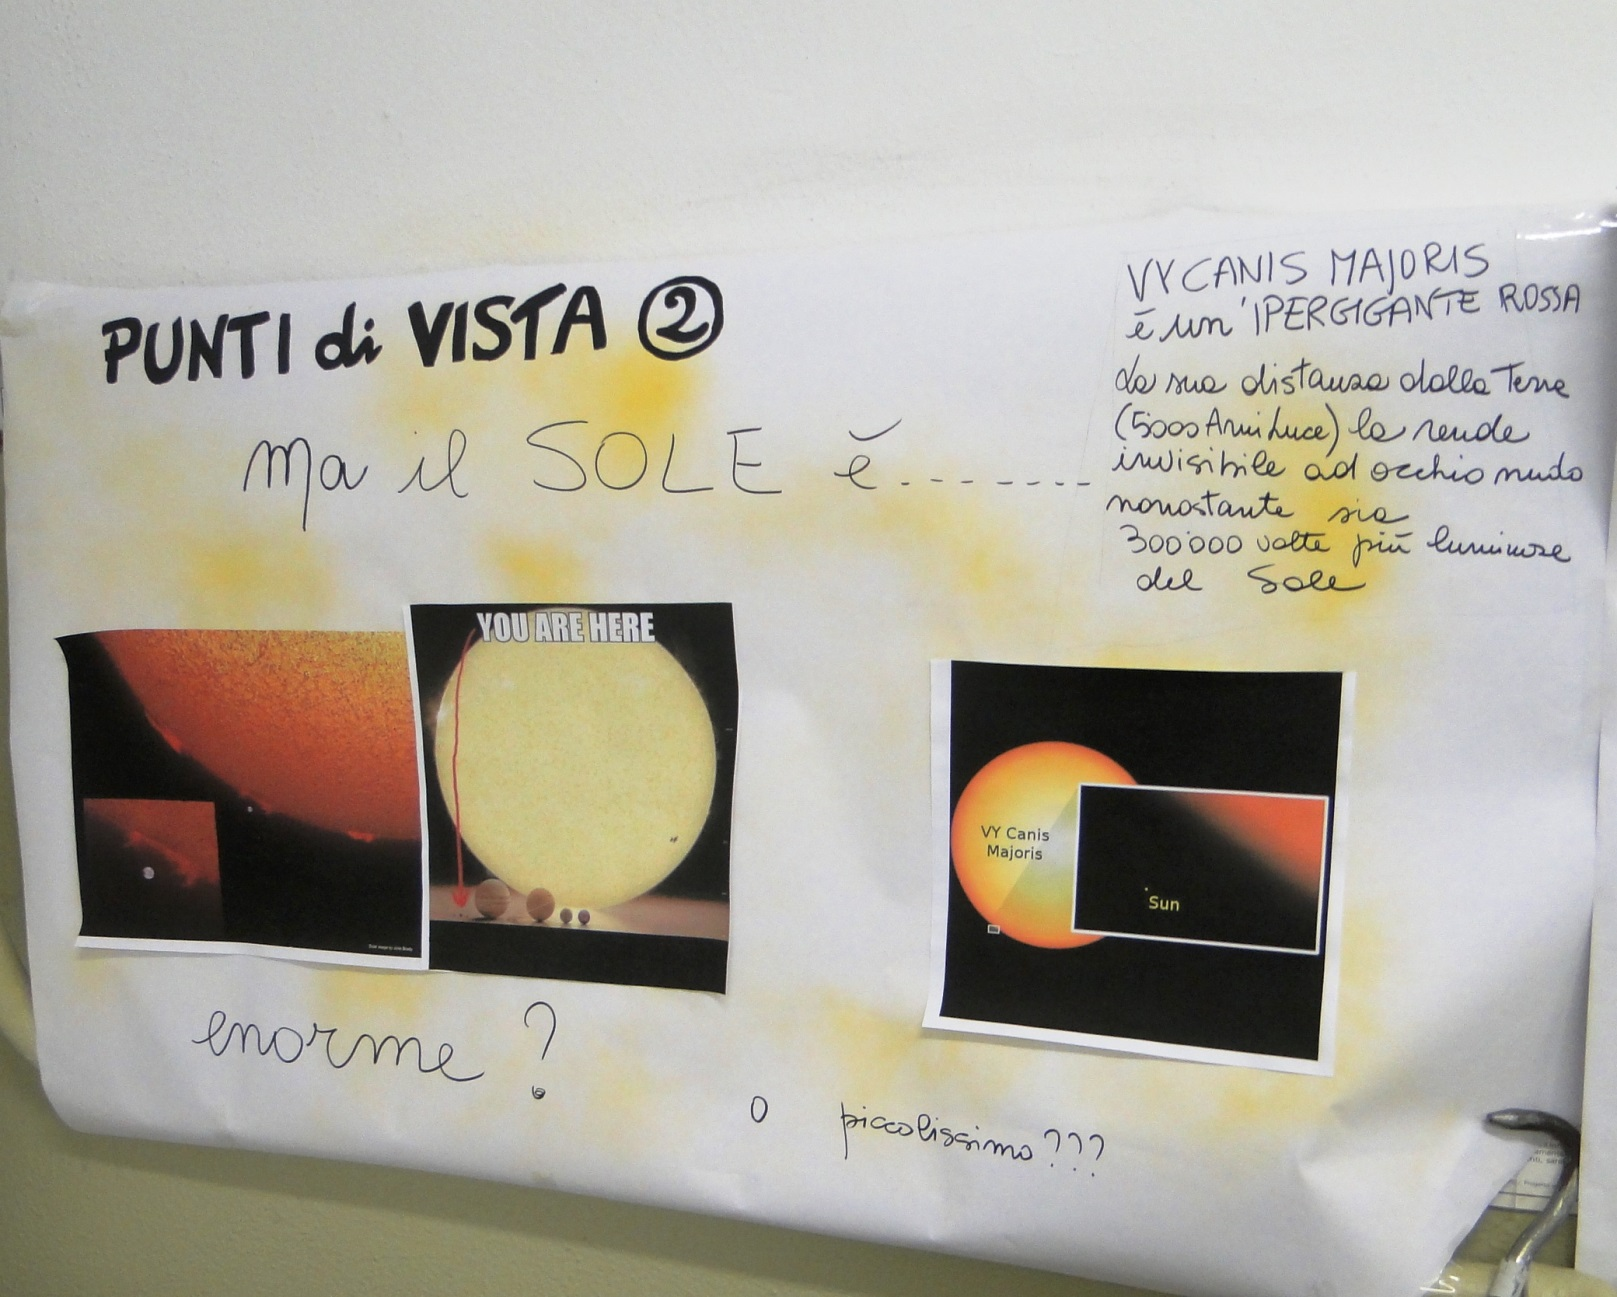 PUNTI di VISTA ②
ma il SOLE è........
VY CANIS MAJORIS
è un'IPERGIGANTE ROSSA
La sua distanza dalla Terra
(5000 Anni Luce) la rende
invisibile ad occhio nudo
nonostante sia
300'000 volte più luminosa
del Sole
YOU ARE HERE
VY Canis
Majoris
Sun
enorme ?
o piccolissimo???